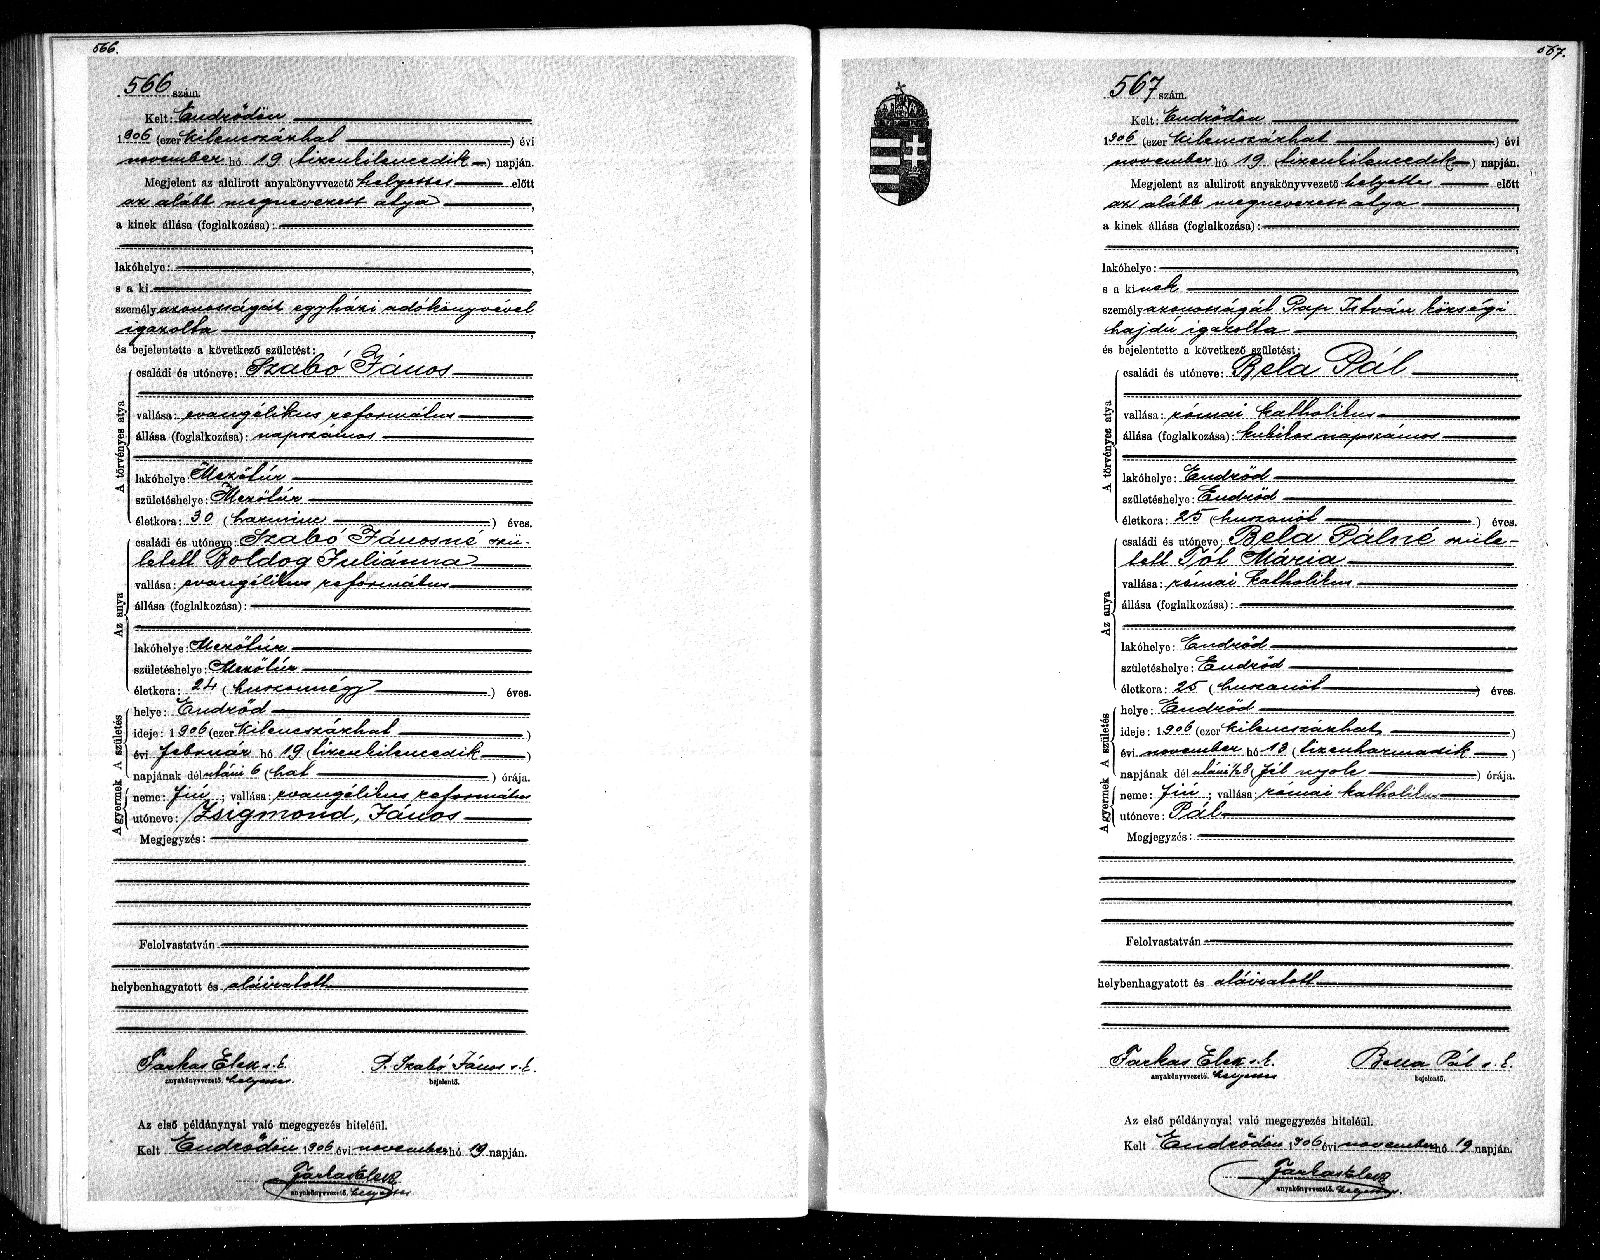 566.
566 szám.
Kelt: Endrődön
1906 (ezer kilencszázhat) évi
november hó 19 (tizenkilencedik) napján.
Megjelent az alulirott anyakönyvvezető helyettes előtt
az alább megnevezett atya,
a kinek állása (foglalkozása):
lakóhelye:
s a ki
személyazonosságát egyházi adókönyvével
igazolta
és bejelentette a következő születést:
A törvényes atya
családi és utóneve: Szabó János
vallása: evangélikus református
állása (foglalkozása): napszámos
lakóhelye: Mezőtúr
születéshelye: Mezőtúr
életkora: 30 (harminc) éves.
Az anya
családi és utóneve: Szabó Jánosné szü-
letett Boldog Juliánna
vallása: evangélikus református
állása (foglalkozása):
lakóhelye: Mezőtúr
születéshelye: Mezőtúr
életkora: 24 (huszonnégy) éves.
A születés
helye: Endrőd
ideje: 1906 (ezer kilencszázhat)
évi február hó 19 (tizenkilencedik)
napjának délutáni 6 (hat) órája.
A gyermek
neme: fiú; vallása: evangélikus református
utóneve: Zsigmond, János
Megjegyzés:
Felolvastatván
helybenhagyatott és aláiratott
Farkas Elek s. k. P. Szabó János s. k.
anyakönyvvezető helyettes bejelentő.
Az első példánynyal való megegyezés hiteléül.
Kelt Endrődön 1906 évi november hó 19 napján.
Farkas Elek
anyakönyvvezető. helyettes
567.
567 szám.
Kelt: Endrődön
1906 (ezer kilencszázhat) évi
november hó 19 (tizenkilencedik) napján.
Megjelent az alulirott anyakönyvvezető helyettes előtt
az alább megnevezett atya,
a kinek állása (foglalkozása):
lakóhelye:
s a kinek
személyazonosságát Pap István községi
hajdú igazolta
és bejelentette a következő születést:
A törvényes atya
családi és utóneve: Bela Pál
vallása: római katholikus
állása (foglalkozása): kubikos napszámos
lakóhelye: Endrőd
születéshelye: Endrőd
életkora: 25 (huszonöt) éves.
Az anya
családi és utóneve: Bela Pálné szüle-
tett Tót Mária
vallása: római katholikus
állása (foglalkozása):
lakóhelye: Endrőd
születéshelye: Endrőd
életkora: 25 (huszonöt) éves.
A születés
helye: Endrőd
ideje: 1906 (ezer kilencszázhat)
évi november hó 13 (tizenharmadik)
napjának délutáni 1/2 8 (fél nyolc) órája.
A gyermek
neme: fiú; vallása: római katholikus
utóneve: Pál
Megjegyzés:
Felolvastatván
helybenhagyatott és aláiratott
Farkas Elek s. k. Bella Pál s. k.
anyakönyvvezető helyettes bejelentő.
Az első példánynyal való megegyezés hiteléül.
Kelt Endrődön 1906 évi november hó 19 napján.
Farkas Elek
anyakönyvvezető. helyettes